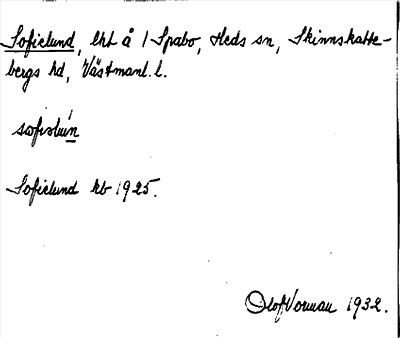 Sofielund, lht å 1 Spabo, Heds sn, Skinnskatte-
bergs hd, Västmanl. l.
Sofielund kb 1925.
Olof Vorman 1932.